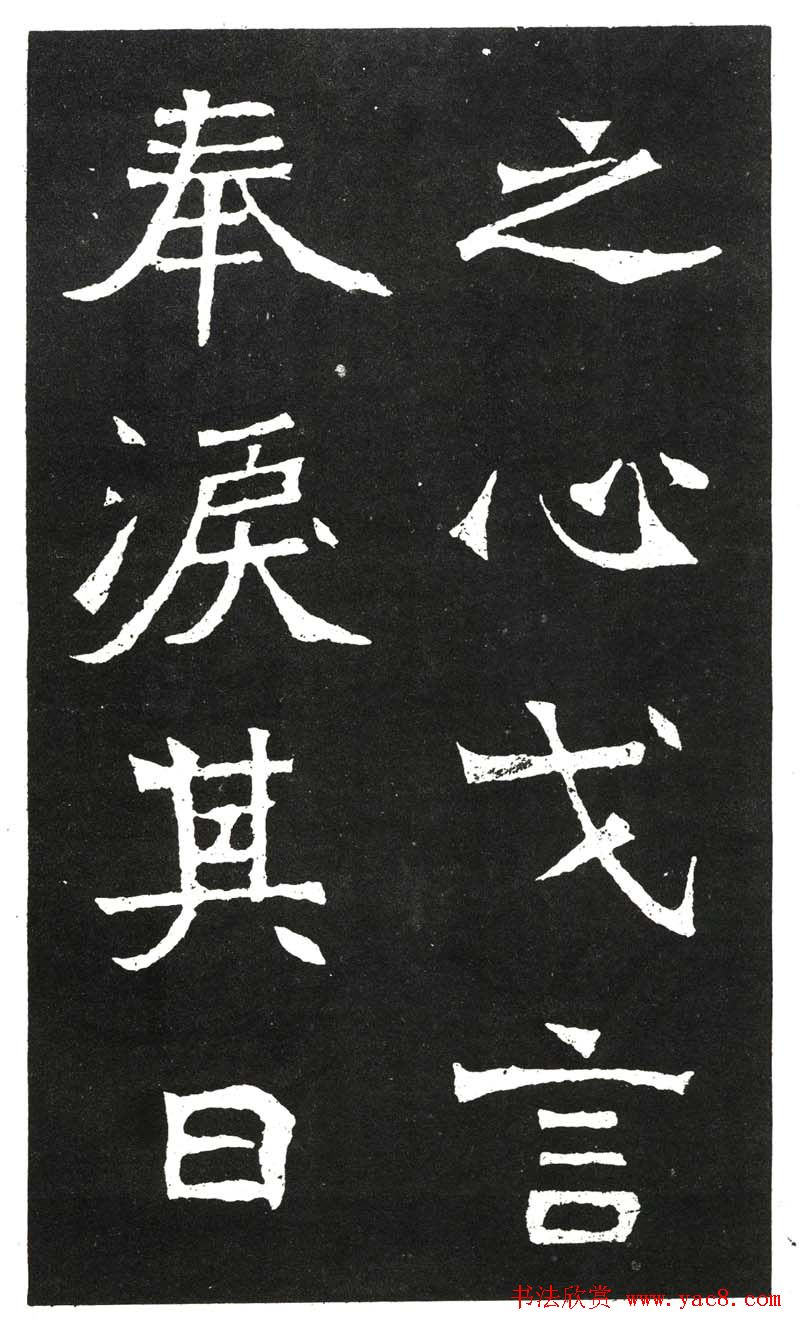 之心戈言
奉淚其日
书法欣赏 www.yac8.com